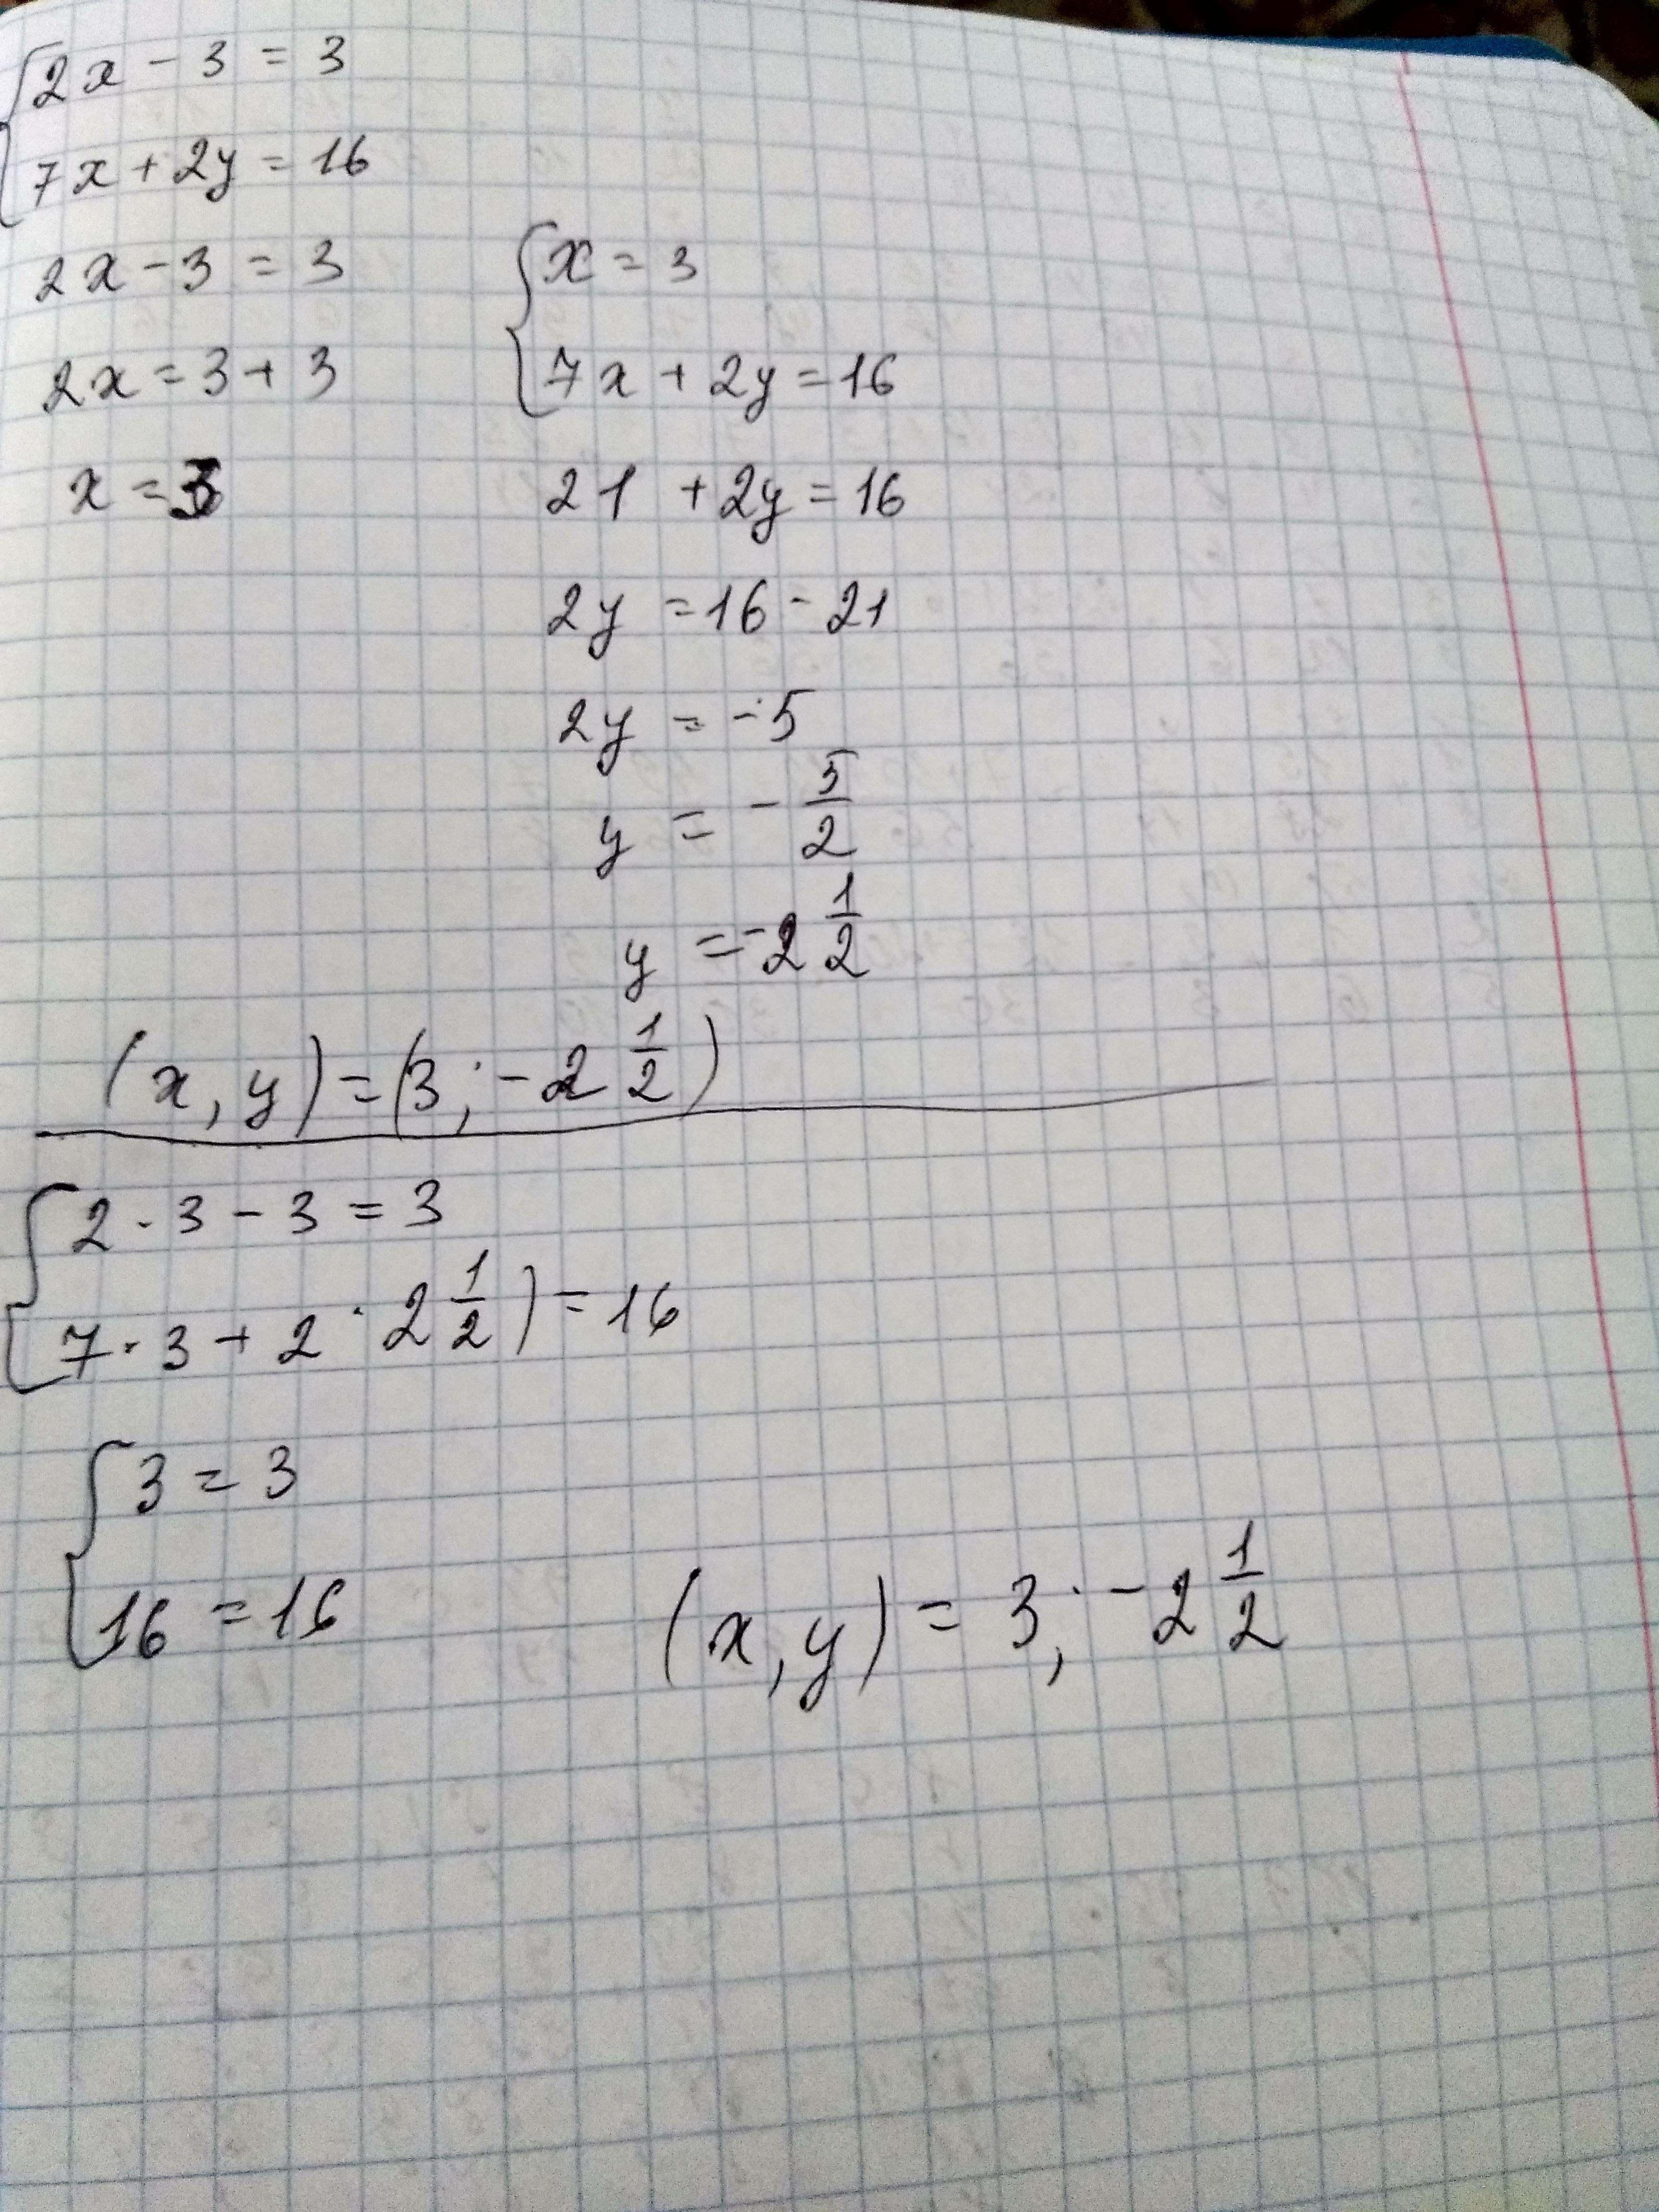 2x - 3 = 3
7x + 2y = 16
2x - 3 = 3
2x = 3 + 3
x = 3
x = 3
7x + 2y = 16
21 + 2y = 16
2y = 16 - 21
2y = -5
y = - 5/2
y = -2 1/2
(x, y) = (3; -2 1/2)
2 · 3 - 3 = 3
7 · 3 + 2 · 2 1/2) = 16
3 = 3
16 = 16
(x, y) = 3; -2 1/2